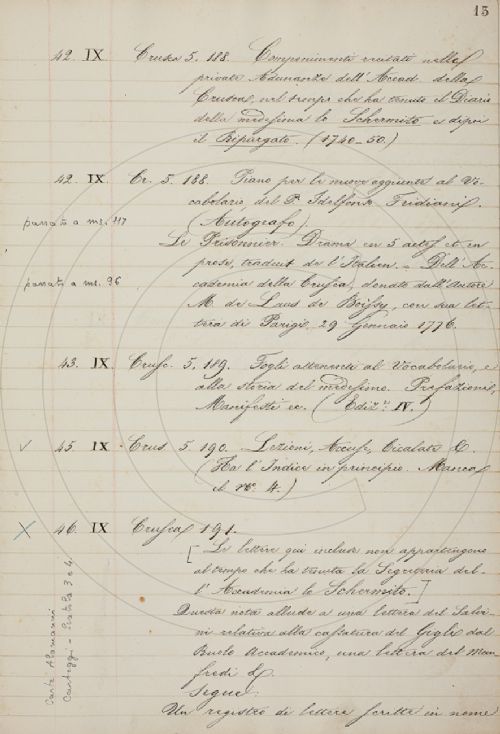 15
42. IX Crusca 5. 188. Componimenti recitati nelle
private Adunanze dell'Accad. della
Crusca, nel tempo che ha tenuto il Diario
della medesima lo Schermito e dipoi
il Ripurgato. (1740-50.)
42. IX. Cr. 5. 188. Piano per le nuove aggiunte al Vo-
cabolario, del P. Idelfonso Fridiani.
passato a ms. 117
(Autografo).
Le Prisonnier. Drame en 5 actes et en
prose, traduit de l'Italien. - Dell'Ac-
passato a ms. 96
cademia della Crusca, donato dall'Autore
M. de Laus de Boissy, con sua let-
tera di Parigi, 29 Gennaio 1776.
43. IX. Crusc. 5. 189. Fogli attenenti al Vocabolario, e
alla storia del medesimo. Prefazioni,
Manifesti ec. (Ediz. IV.)
45. IX Crus 5. 190. Lezioni, Accuse, Cicalate &.
(Ha l'Indice in principio. Manca
il no. 4.)
46. IX Crusca 191.
[Le lettere qui incluse non appartengono
al tempo che ha tenuta la Segreteria del-
l'Accademia lo Schermito.]
Questa nota allude a una lettera del Salvi-
ni relativa alla cassatura del Gigli dal
Ruolo Accademico, una lettera del Man-
fredi &.
Segue.
Un registro di lettere scritte in nome
Carte Alamanni
Carteggi - 3 e 4.